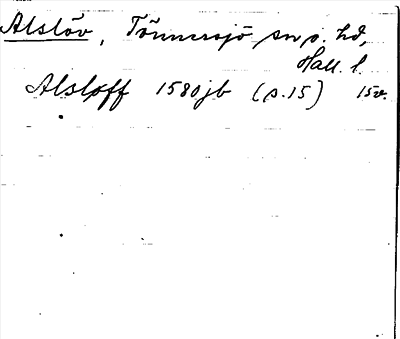 Alslöv, Tönnersjö sn o. hd,
Hall. l.
Alsloff 1580jb (s.15) 15v.